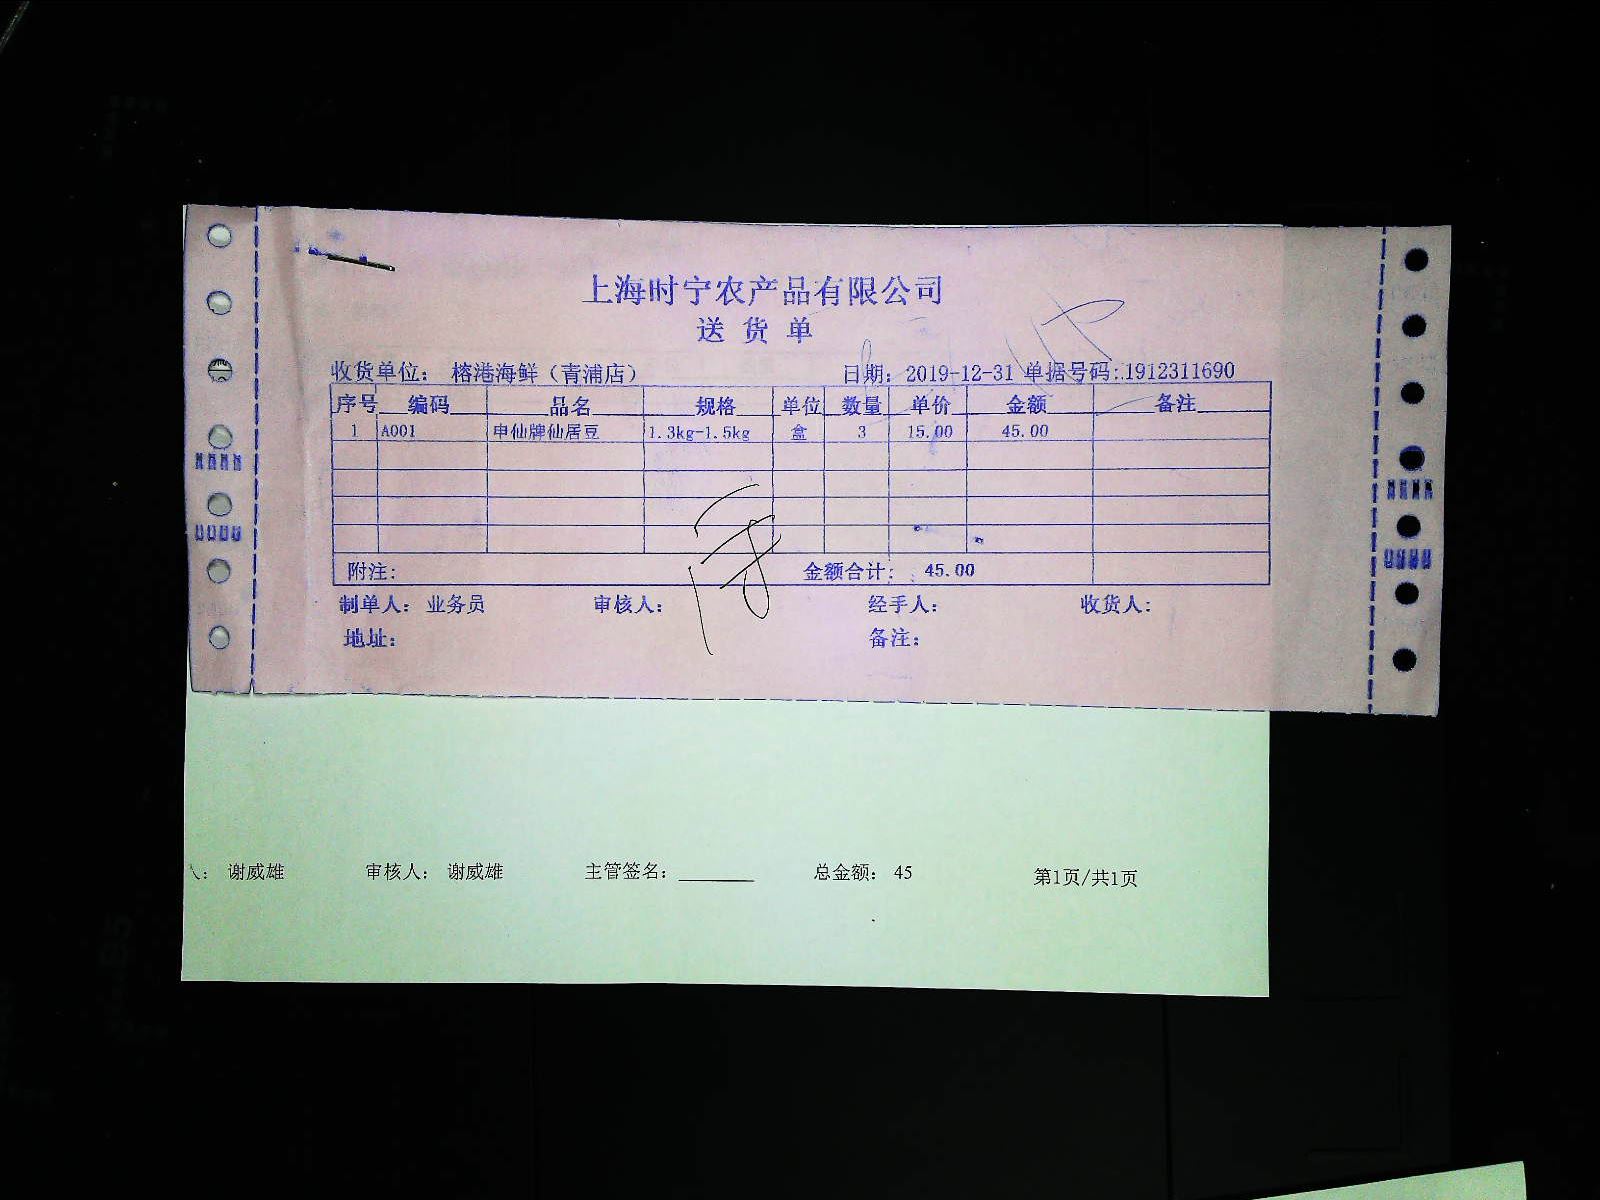 上海时宁农产品有限公司
送货单
收货单位： 榕港海鲜（青浦店） 日期： 2019-12-31 单据号码：1912311690
序号 编码 品名 规格 单位 数量 单价 金额 备注
1 A001 申仙牌仙居豆 1.3kg-1.5kg 盒 3 15.00 45.00
附注： 金额合计： 45.00
制单人： 业务员 审核人： 经手人： 收货人：
地址： 备注：
人： 谢威雄 审核人： 谢威雄 主管签名： 总金额： 45 第1页/共1页